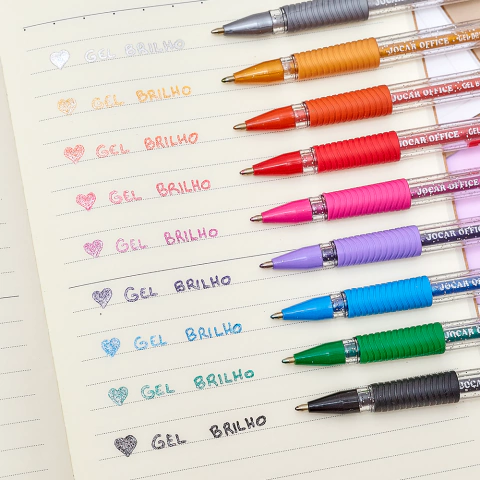 GEL BRILHO
GEL BRILHO
JOCAR OFFICE · GEL
GEL BRILHO
JOCAR OFFICE
GEL BRILHO
JOCAR OFFICE
GEL BRILHO
JOCAR OFFICE
GEL BRILHO
JOCAR OFFIC
GEL BRILHO
JOCAR OF
GEL BRILHO
JOCAR
GEL BRILHO
JOCAR